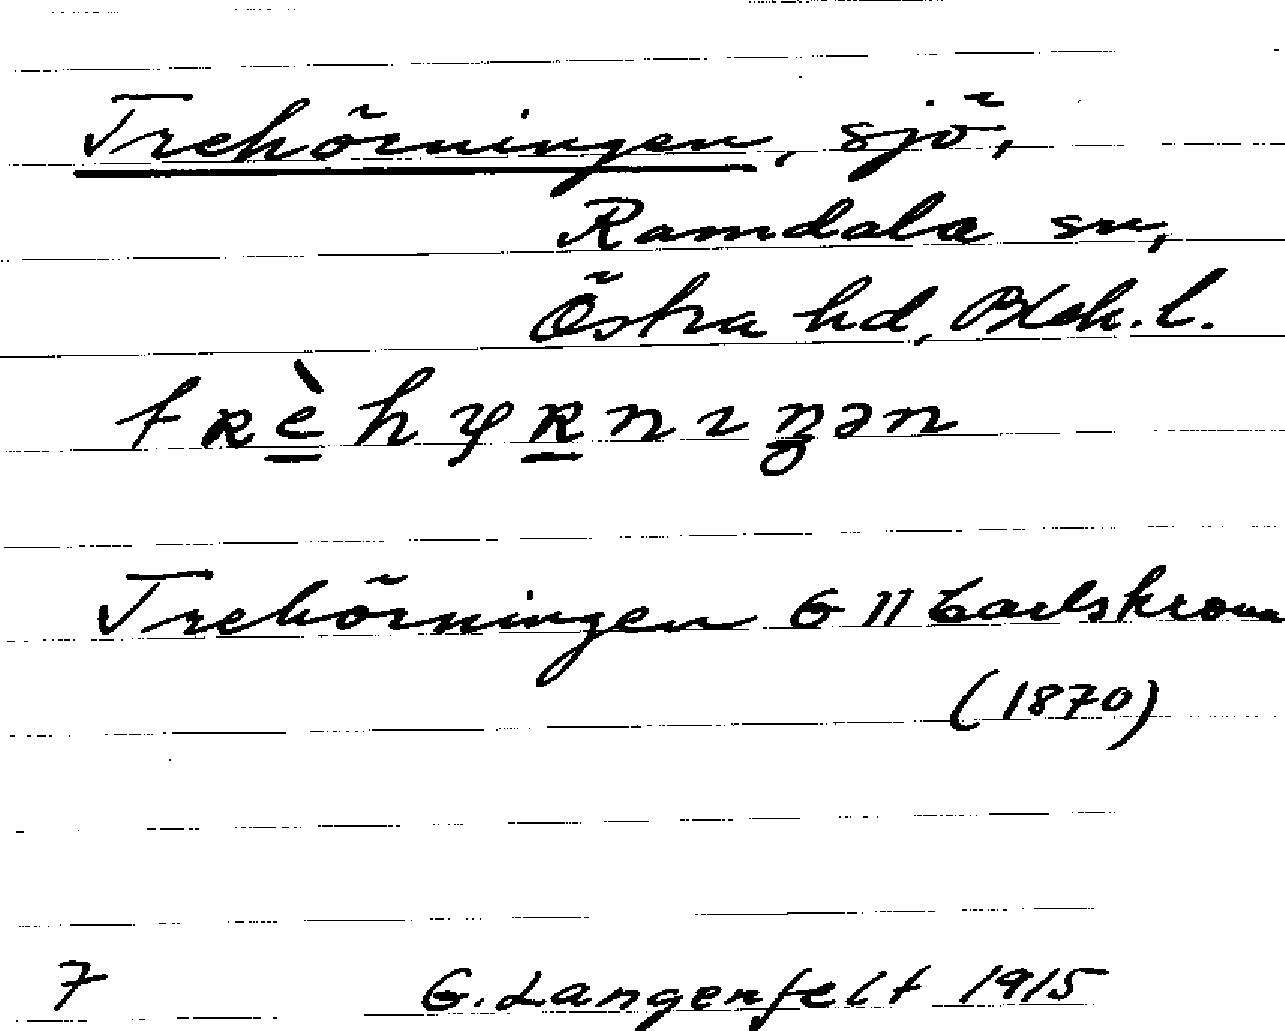 Trehörningen, sjö,
Ramdala sn,
Östra hd, Blek. l.
trèhyʀnıŋən
Trehörningen G 11 Carlskrona
(1870)
7 G. Langenfelt 1915